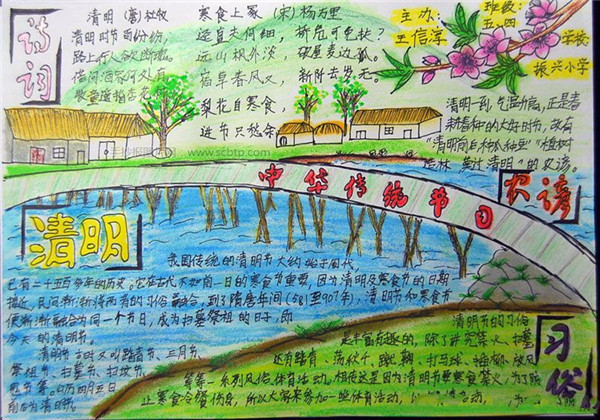 诗词
清明 (唐) 杜牧
清明时节雨纷纷,
路上行人欲断魂。
借问酒家何处有,
牧童遥指杏花村
寒食上冢 (宋) 杨万里
迳直夫何细,
桥危可免扶?
远山枫外淡,
破屋麦边孤。
宿草春风又,
新阡去岁无。
梨花自寒食,
进节只愁余
主办:
王信淳
班级:
五、四
学校:
振兴小学
清明一到,气温升高,正是春
耕春种的大好时节,故有
"清明前后,种瓜种豆""植树
造林,莫过清明"的农谚。
农谚
www.scbtp.com
中华传统节日
清明
我国传统的清明节大约始于周代,
已有二千五百多年的历史。它在古代不如前一日的寒食节重要,因为清明及寒食节的日期
接近,民间渐渐将两者的习俗融合,到了隋唐年间(581至907年),清明节和寒食节
便渐渐融合为同一个节日,成为扫墓祭祖的日子,即
今天的清明节。
清明节古时又叫踏青节、三月节、
祭祖节、扫墓节、
清明节的习俗
是丰富有趣的,除了讲究禁火、扫墓
还有踏青、荡秋千、蹴鞠、打马球、插柳
等等一系列风俗体育活动。相传这是因为清明节要寒食禁火,为了防
止寒食冷餐伤身,所以大家来参加一些体育活动,
习俗!